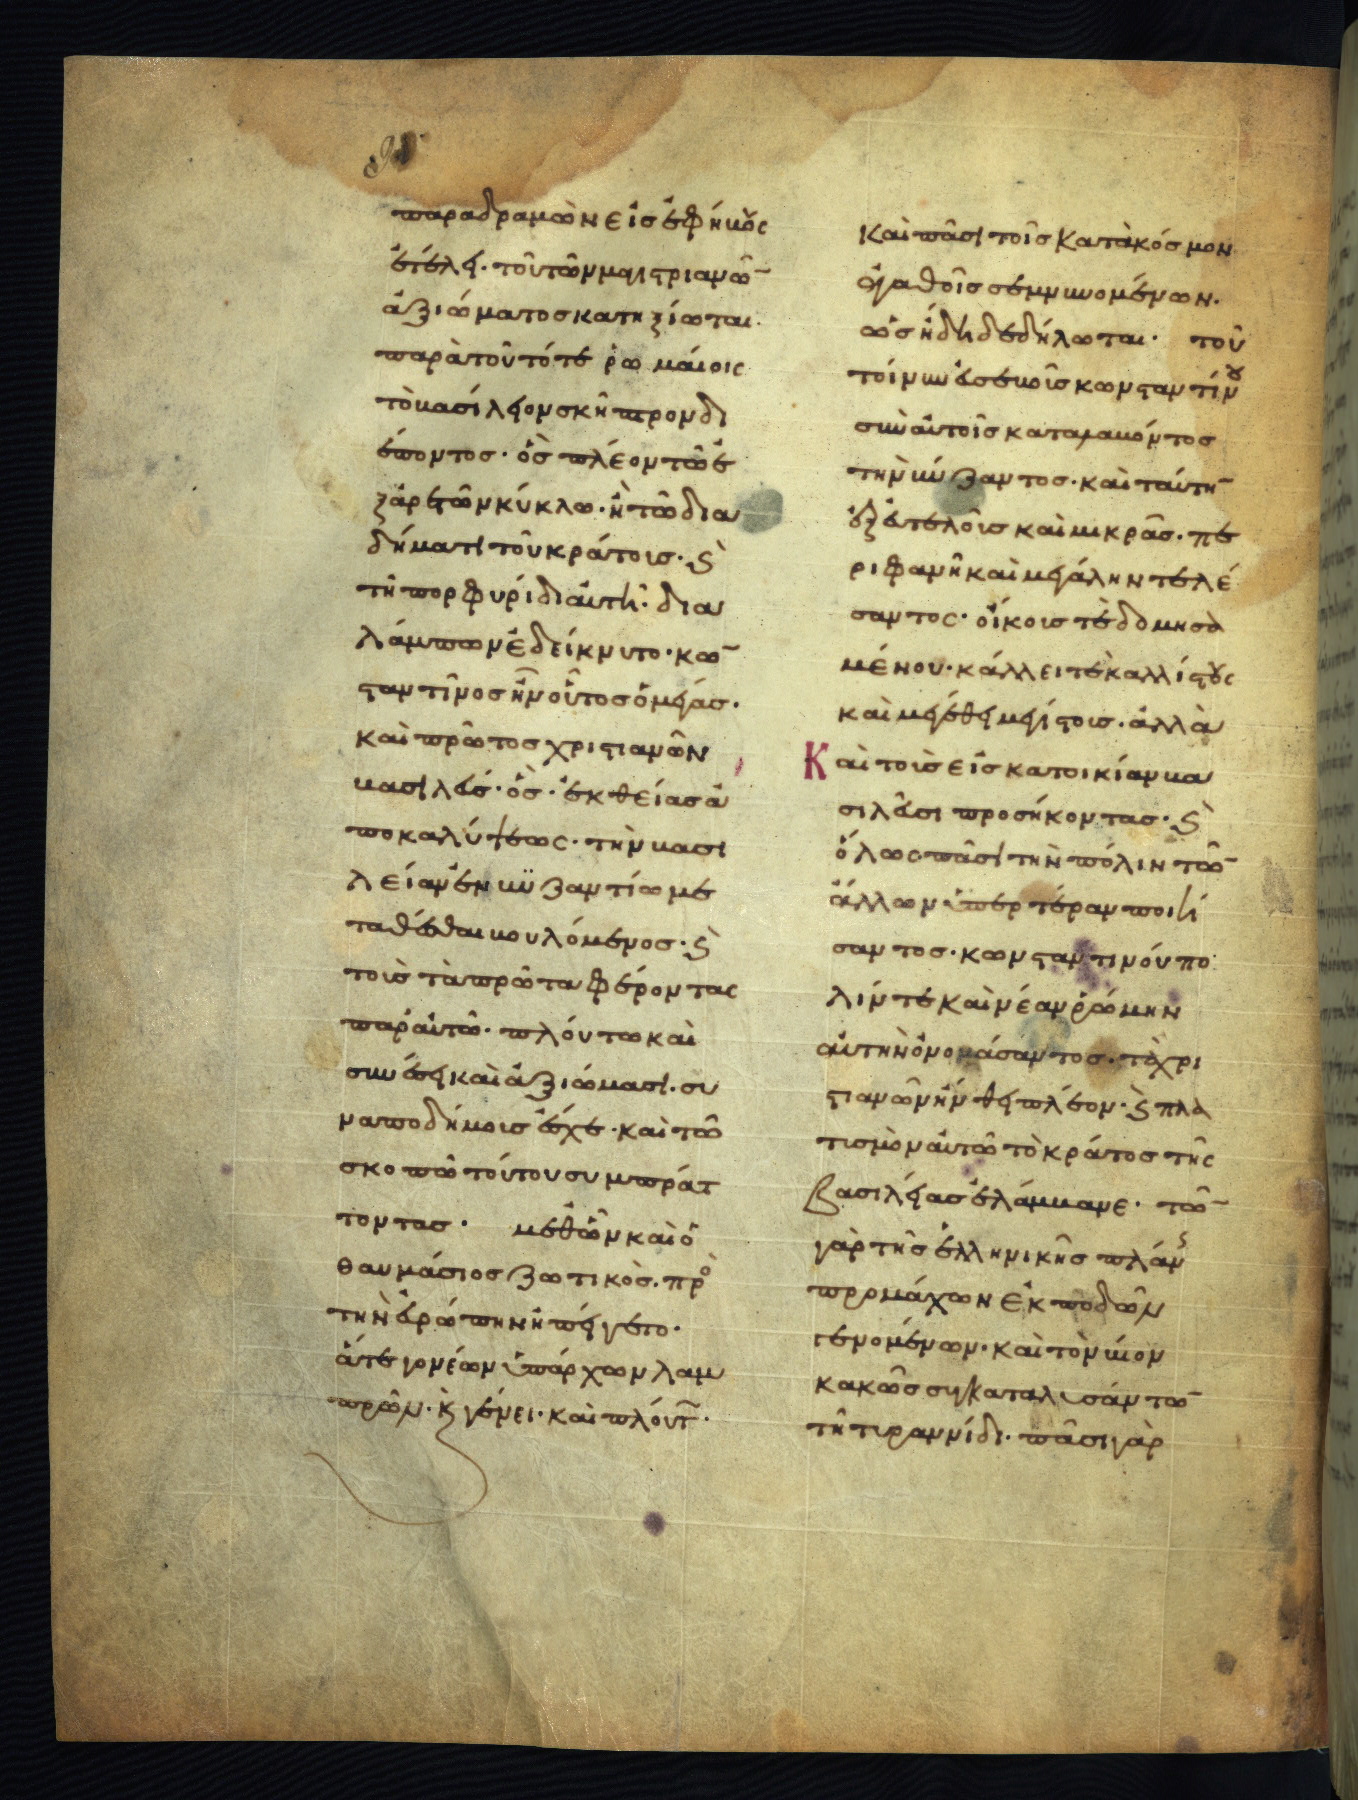 παραδραμὼν εἰς ἐφήβους
ἐτέλει· τοῦ τῶν μαγιστριανῶν
ἀξιώματος κατηξίωται
παρὰ τοῦ τότε ῥωμαίοις
τὸ βασίλειον σκῆπτρον δι
έποντος· ὃς πλέον τῶ ἐ
ξ ἀρετῶν κύκλω· ἢ τῶ δια
δήματι τοῦ κράτους· καὶ
τῆ πορφυρίδι αὐτῆ· δια
λάμπων ἐδείκνυτο· κων
σταντῖνος ἦν οὗτος ὁ μέγας·
καὶ πρῶτος χριστιανῶν
βασιλεύς· ὃς ἐκ θείας ἀ
ποκαλύψεως· τὴν βασι
λείαν ἐν βϋζαντίω με
ταθέσθαι βουλόμενος· καὶ
τοὺς τὰ πρῶτα φέροντας
παρ' αὐτῶ· πλούτω καὶ
συνέσει καὶ ἀξιώμασι· συ
ναποδήμους ἔσχε· καὶ τῶ
σκοπῶ τούτου συμπράτ
τοντας· μεθ' ὧν καὶ ὁ
θαυμάσιος ζωτικὸς· πρὸς
τὴν εὐρώπην ἠπείγετο·
ἅτε γονέων ὑπάρχων λαμ
πρῶν· καὶ γένει· καὶ πλούτω·
καὶ πᾶσι τοῖς κατὰ κόσμον
ἀγαθοῖς σεμνυνομένων·
ὡς ἤδη δεδήλωται· τοῦ
τοίνυν εὐσεβοῦς κωνσταντίνου
σὺν αὐτοῖς καταλαβόντος
τὴν βύζαντος· καὶ ταύτην
ἐξ εὐτελοῦς καὶ μικρᾶς· πε
ριφανῆ καὶ μεγάλην τελέ
σαντος· οἴκους τὲ δομησα
μένου· κάλλει τὲ καλλίστους
καὶ μεγέθει μεγίστους· ἀλλὰ
Καὶ τοὺς εἰς κατοικίαν βα
σιλεῦσι προσήκοντας· καὶ
ὅλως πᾶσι τὴν πόλιν τῶν
ἄλλων ὑπερτέραν ποιή
σαντος· κωνσταντινούπο
λίν τε καὶ νέαν ῥώμην
αὐτὴν ὀνομάσαντος· τὰ χρι
στιανῶν ἤνθει πλέον· καὶ πλα
τυσμὸν αὐτῶ τὸ κράτος τῆς
βασιλείας ἐλάμβανε· τῶν
γὰρ τῆς ἑλληνικῆς πλάνης
προμάχων ἐκποδὼν
γενομένων· καὶ τὸν βίον
κακῶς συγκαταλυσάντων
τῆ τυραννίδι· πᾶσι γὰρ